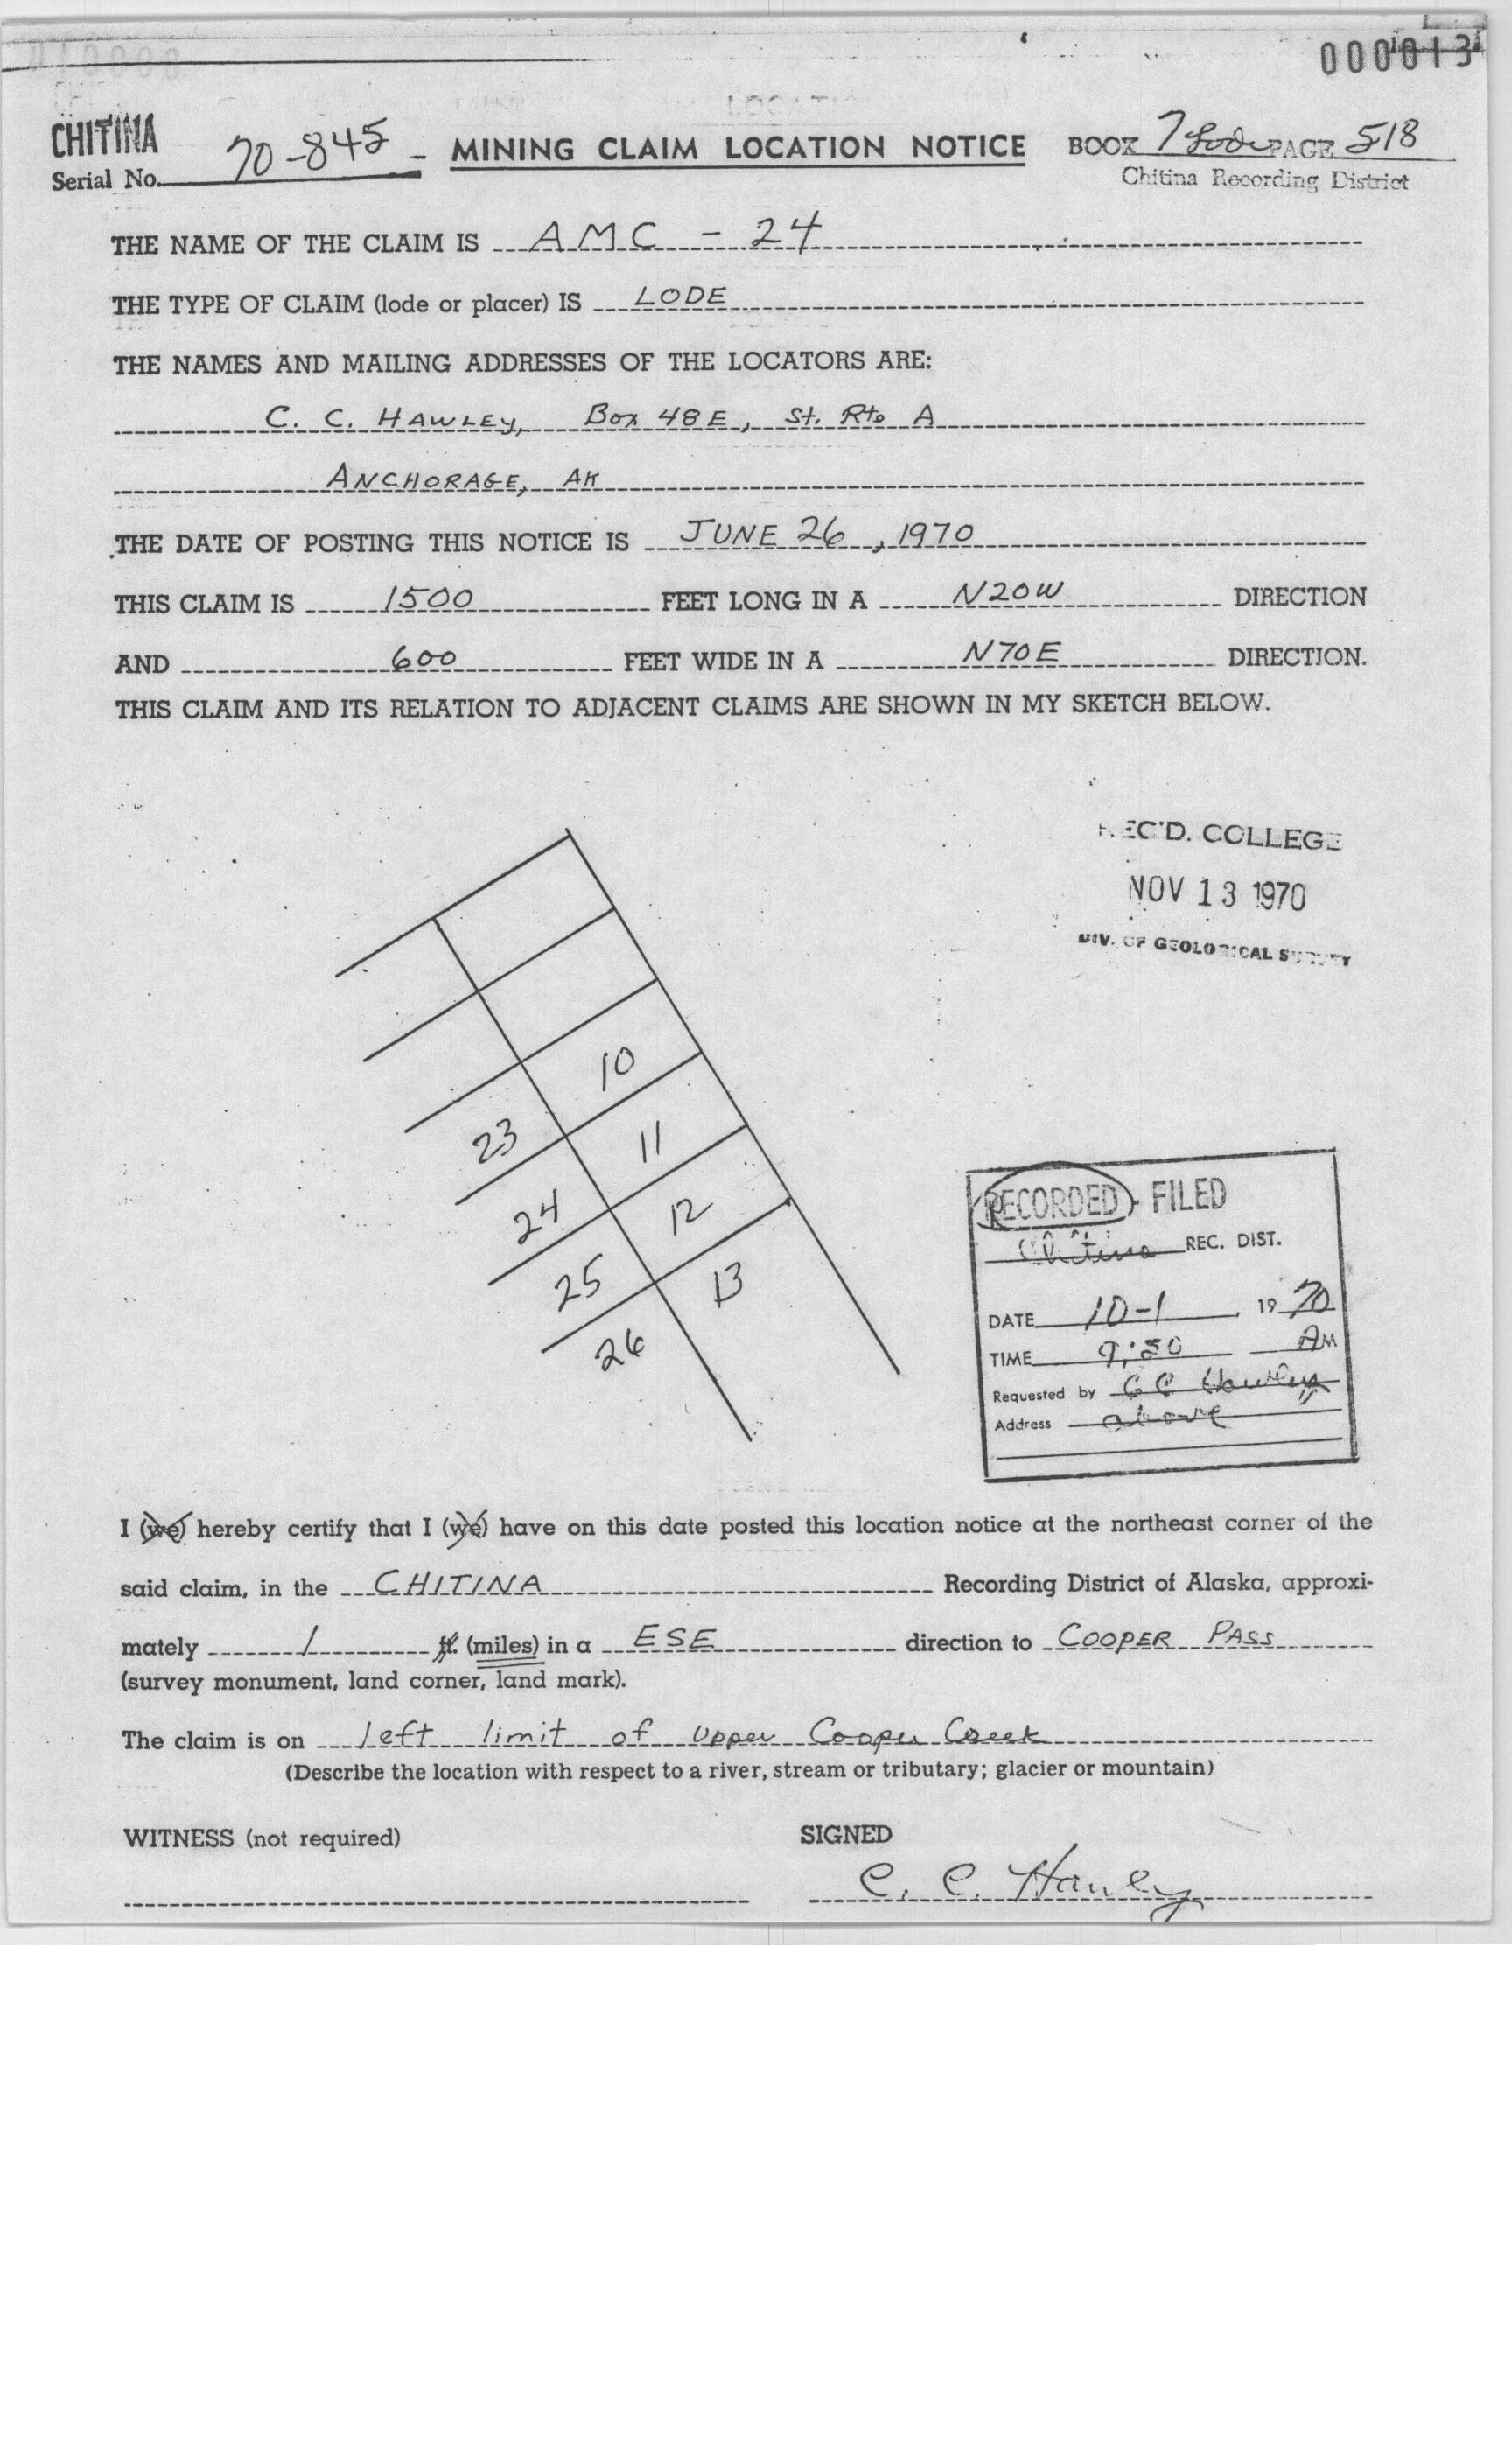 000013
CHITINA
Serial No. 70-845 - MINING CLAIM LOCATION NOTICE BOOK 7 Lode PAGE 518
Chitina Recording District
THE NAME OF THE CLAIM IS AMC - 24
THE TYPE OF CLAIM (lode or placer) IS LODE
THE NAMES AND MAILING ADDRESSES OF THE LOCATORS ARE:
C. C. HAWLEY, Box 48E, St. Rte A
ANCHORAGE, AK
THE DATE OF POSTING THIS NOTICE IS JUNE 26, 1970
THIS CLAIM IS 1500 FEET LONG IN A N20W DIRECTION
AND 600 FEET WIDE IN A N70E DIRECTION.
THIS CLAIM AND ITS RELATION TO ADJACENT CLAIMS ARE SHOWN IN MY SKETCH BELOW.
REC'D. COLLEGE
NOV 13 1970
DIV. OF GEOLOGICAL SURVEY
10
23 11
24 12
25 13
26
RECORDED - FILED
Chitina REC. DIST.
DATE 10-1 1970
TIME 9:50 AM
Requested by C C Hawley
Address above
I (we) hereby certify that I (we) have on this date posted this location notice at the northeast corner of the
said claim, in the CHITINA Recording District of Alaska, approxi-
mately 1 ft. (miles) in a ESE direction to COOPER PASS
(survey monument, land corner, land mark).
The claim is on left limit of Upper Cooper Creek
(Describe the location with respect to a river, stream or tributary; glacier or mountain)
WITNESS (not required) SIGNED
C. C. Hawley